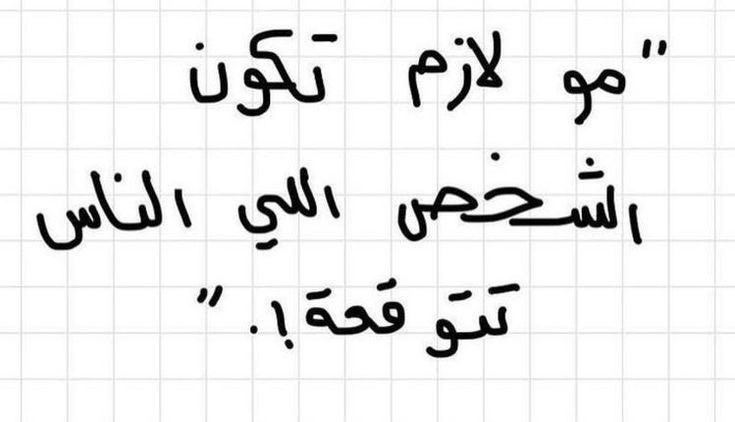 "مو لازم تكون
الشخص اللي الناس
تتوقعة!."